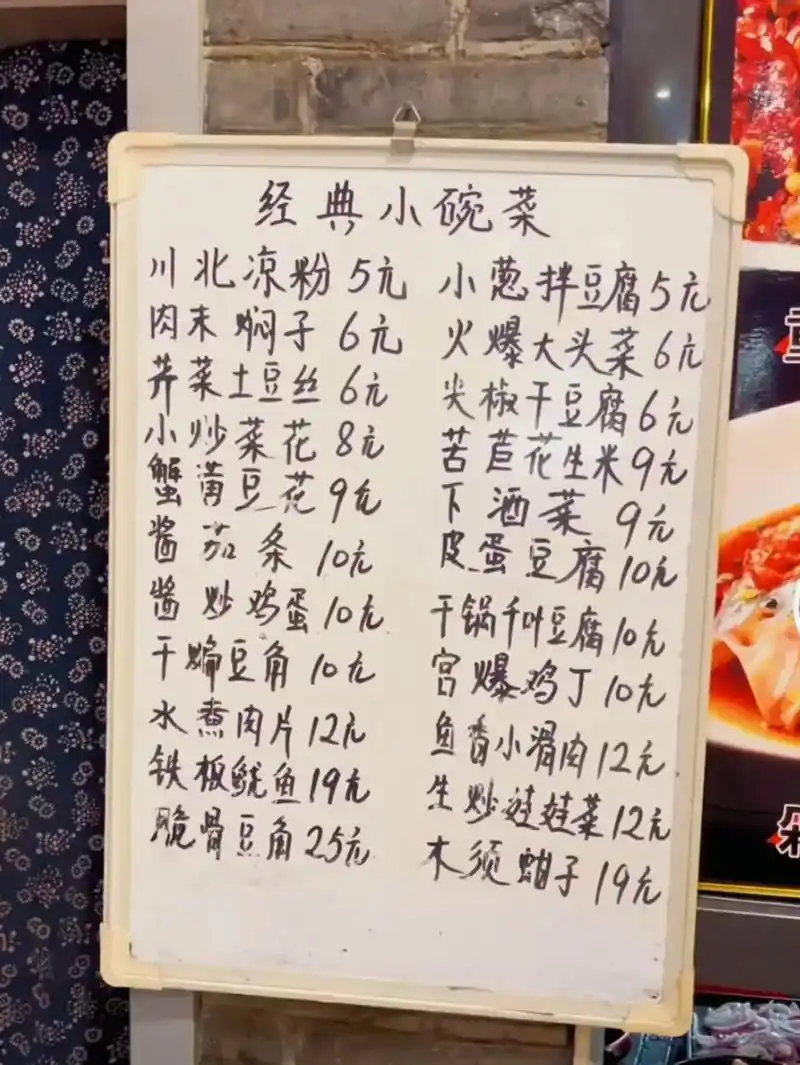 经典小碗菜
川北凉粉 5元
肉末焖子 6元
芹菜土豆丝 6元
小炒菜花 8元
蟹黄豆花 9元
酱茄条 10元
酱炒鸡蛋 10元
干煸豆角 10元
水煮肉片 12元
铁板鱿鱼 19元
脆骨豆角 25元
小葱拌豆腐 5元
火爆大头菜 6元
尖椒干豆腐 6元
苦苣花生米 9元
下酒菜 9元
皮蛋豆腐 10元
干锅千叶豆腐 10元
宫爆鸡丁 10元
鱼香小滑肉 12元
生炒娃娃菜 12元
木须蚶子 19元